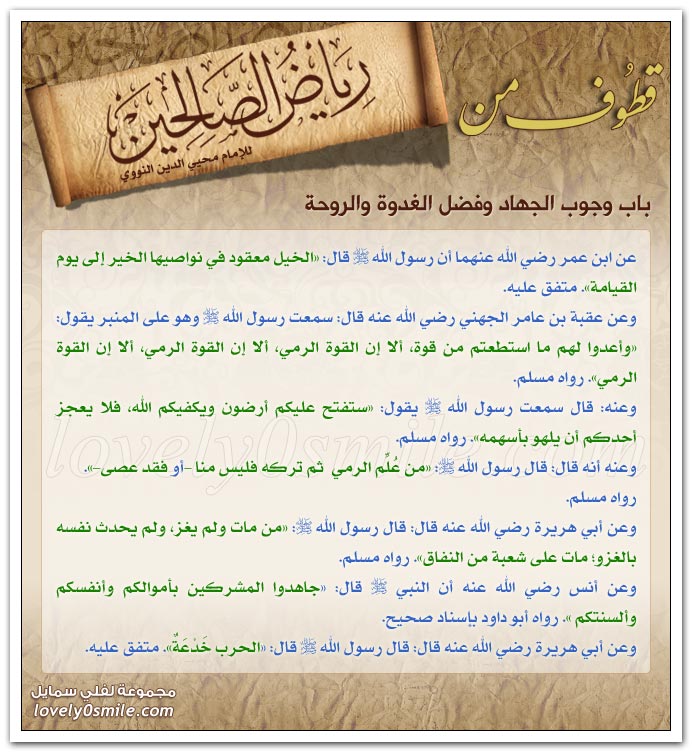 قطوف من
رياض الصالحين
للإمام محيي الدين النووي
باب وجوب الجهاد وفضل الغدوة والروحة
عن ابن عمر رضي الله عنهما أن رسول الله ﷺ قال: «الخيل معقود في نواصيها الخير إلى يوم
القيامة». متفق عليه.
وعن عقبة بن عامر الجهني رضي الله عنه قال: سمعت رسول الله ﷺ وهو على المنبر يقول:
«وأعدوا لهم ما استطعتم من قوة، ألا إن القوة الرمي، ألا إن القوة الرمي، ألا إن القوة
الرمي». رواه مسلم.
وعنه: قال سمعت رسول الله ﷺ يقول: «ستفتح عليكم أرضون ويكفيكم الله، فلا يعجز
أحدكم أن يلهو بأسهمه». رواه مسلم.
وعنه أنه قال: قال رسول الله ﷺ: «من عُلِّم الرمي ثم تركه فليس منا -أو فقد عصى-».
رواه مسلم.
وعن أبي هريرة رضي الله عنه قال: قال رسول الله ﷺ: «من مات ولم يغز، ولم يحدث نفسه
بالغزو؛ مات على شعبة من النفاق». رواه مسلم.
وعن أنس رضي الله عنه أن النبي ﷺ قال: «جاهدوا المشركين بأموالكم وأنفسكم
وألسنتكم ». رواه أبو داود بإسناد صحيح.
وعن أبي هريرة رضي الله عنه قال: قال رسول الله ﷺ قال: «الحرب خَدْعَةٌ». متفق عليه.
lovely0smile.com
مجموعة لفلي سمايل
lovely0smile.com